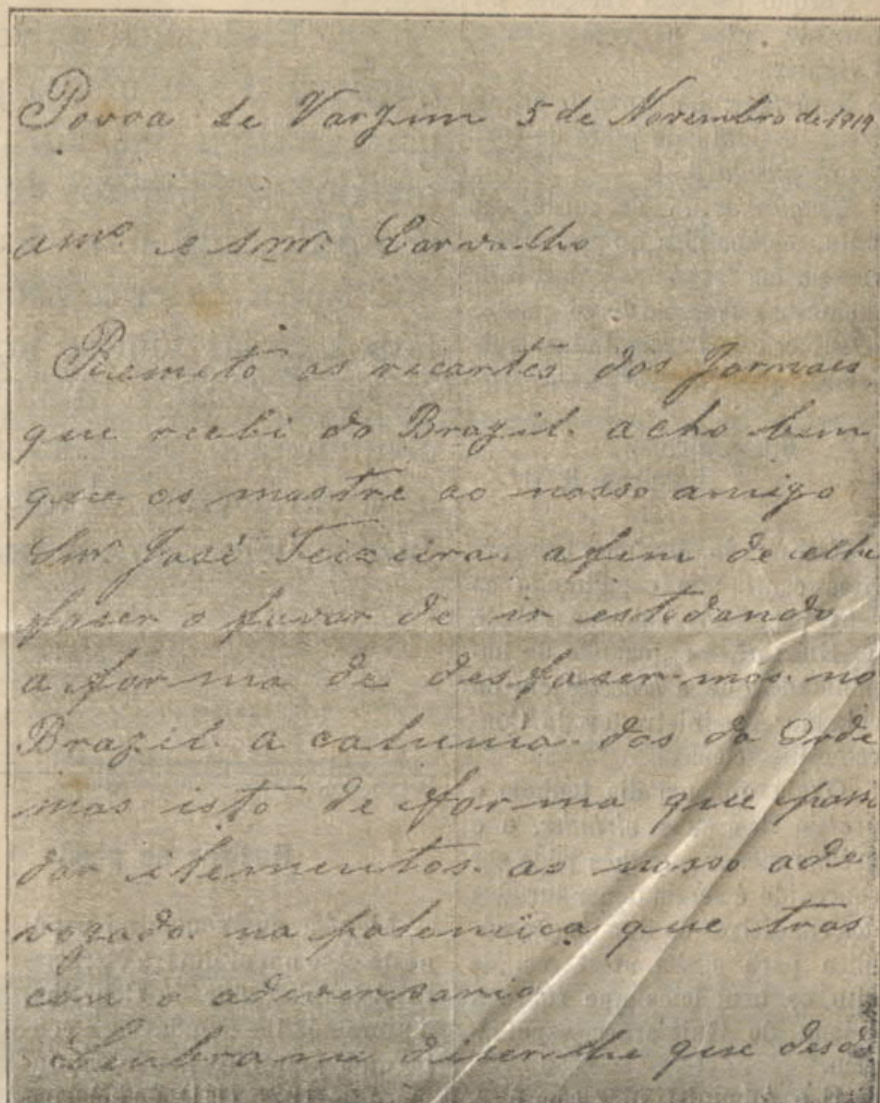 Povoa de Varzim 5 de Novembro de 1919
amo. e snr. Carvalho
Remeto os recortes dos Jornaes
que recebi do Brazil. acho bem
que os mostre ao nosso amigo
Snr. José Teixeira. afim de elle
faser o favor de ir estodando
a forma de desfaser-mos. no
Brazil. a calunia. dos da Orde
mas isto de forma que
dar elementos. ao nosso ade
vogado. na polemica que tras
com o adeversario
Lembra me diser-lhe que